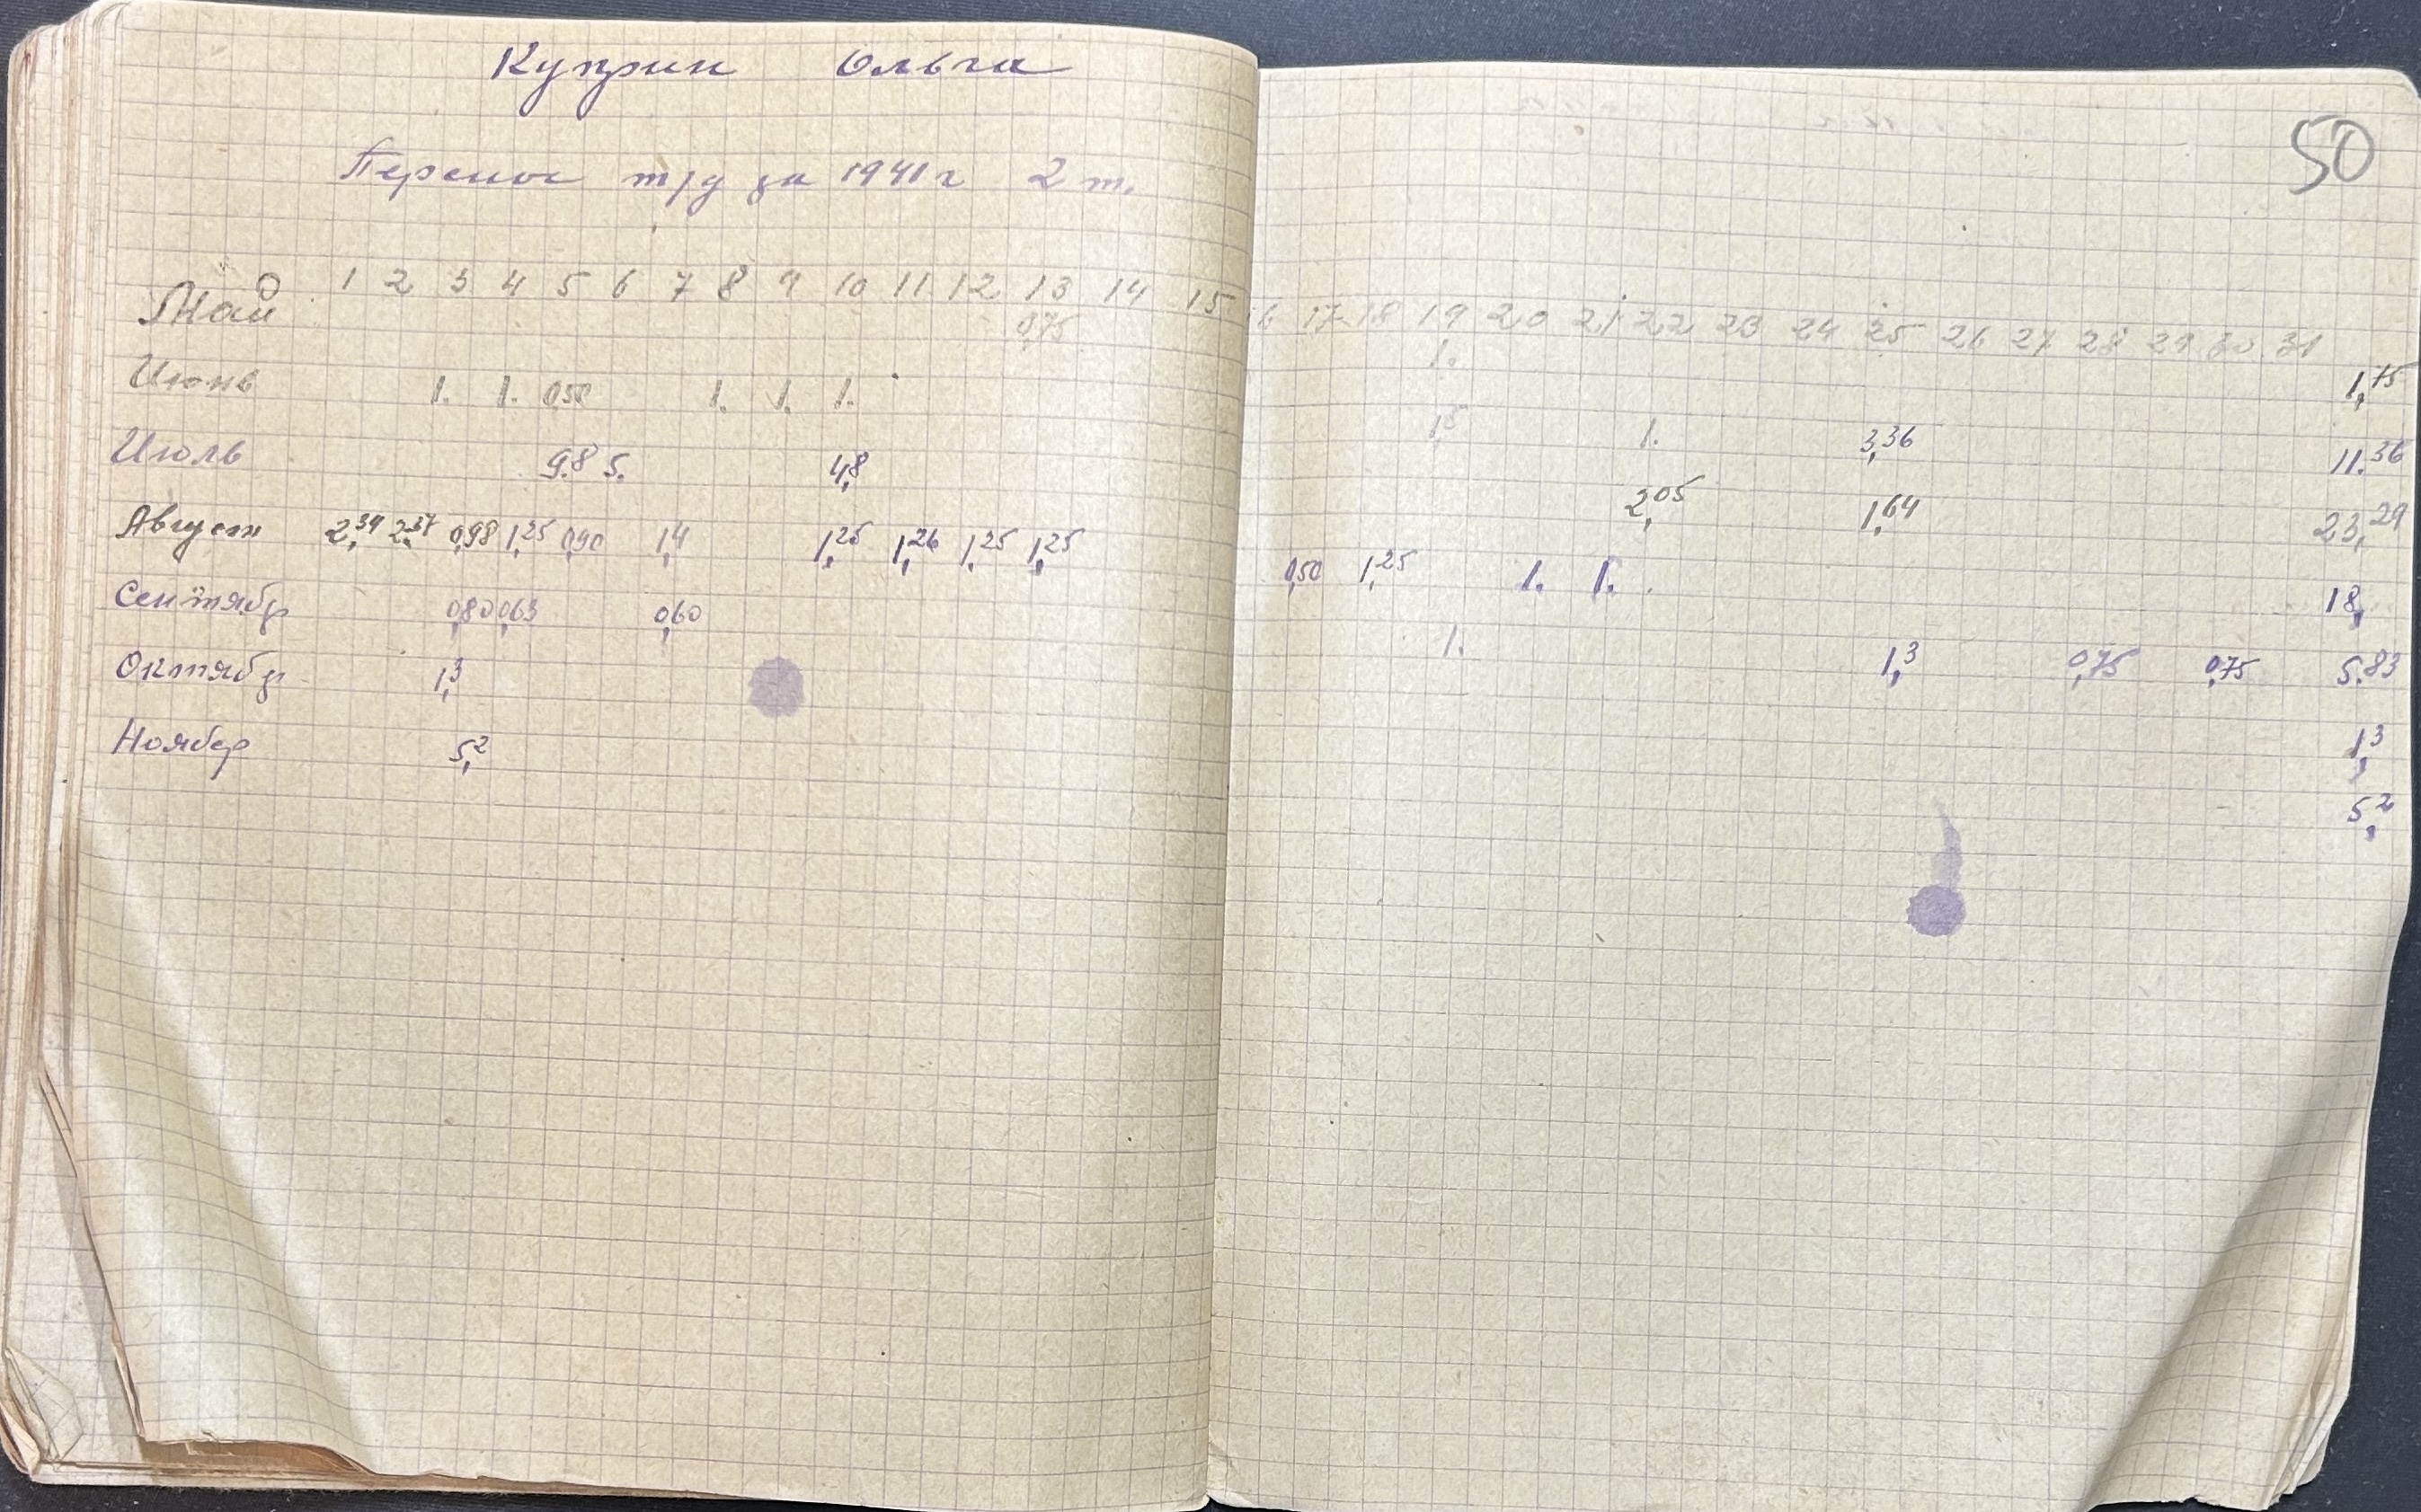 Куприн Ольга
50
Перенос т/д за 1941 г 2 т.
1 2 3 4 5 6 7 8 9 10 11 12 13 14 15 16 17 18 19 20 21 22 23 24 25 26 27 28 29 30 31
Май 0,75 1. 1,75
Июнь 1. 1. 0,50 1. 1. 1. 1,5 1. 3,36 11.36
Июль 9.8 5. 4,8 2,05 1,64 23,29
Август 2,34 2,37 0,98 1,25 0,90 1,4 1,25 1,26 1,25 1,25 0,50 1,25 1. 1. 18,
Сентябр 0,80 0,63 0,60 1. 1,3 0,75 0,75 5.83
Октябр 1,3 1,3
Ноябер 5,2 5,2